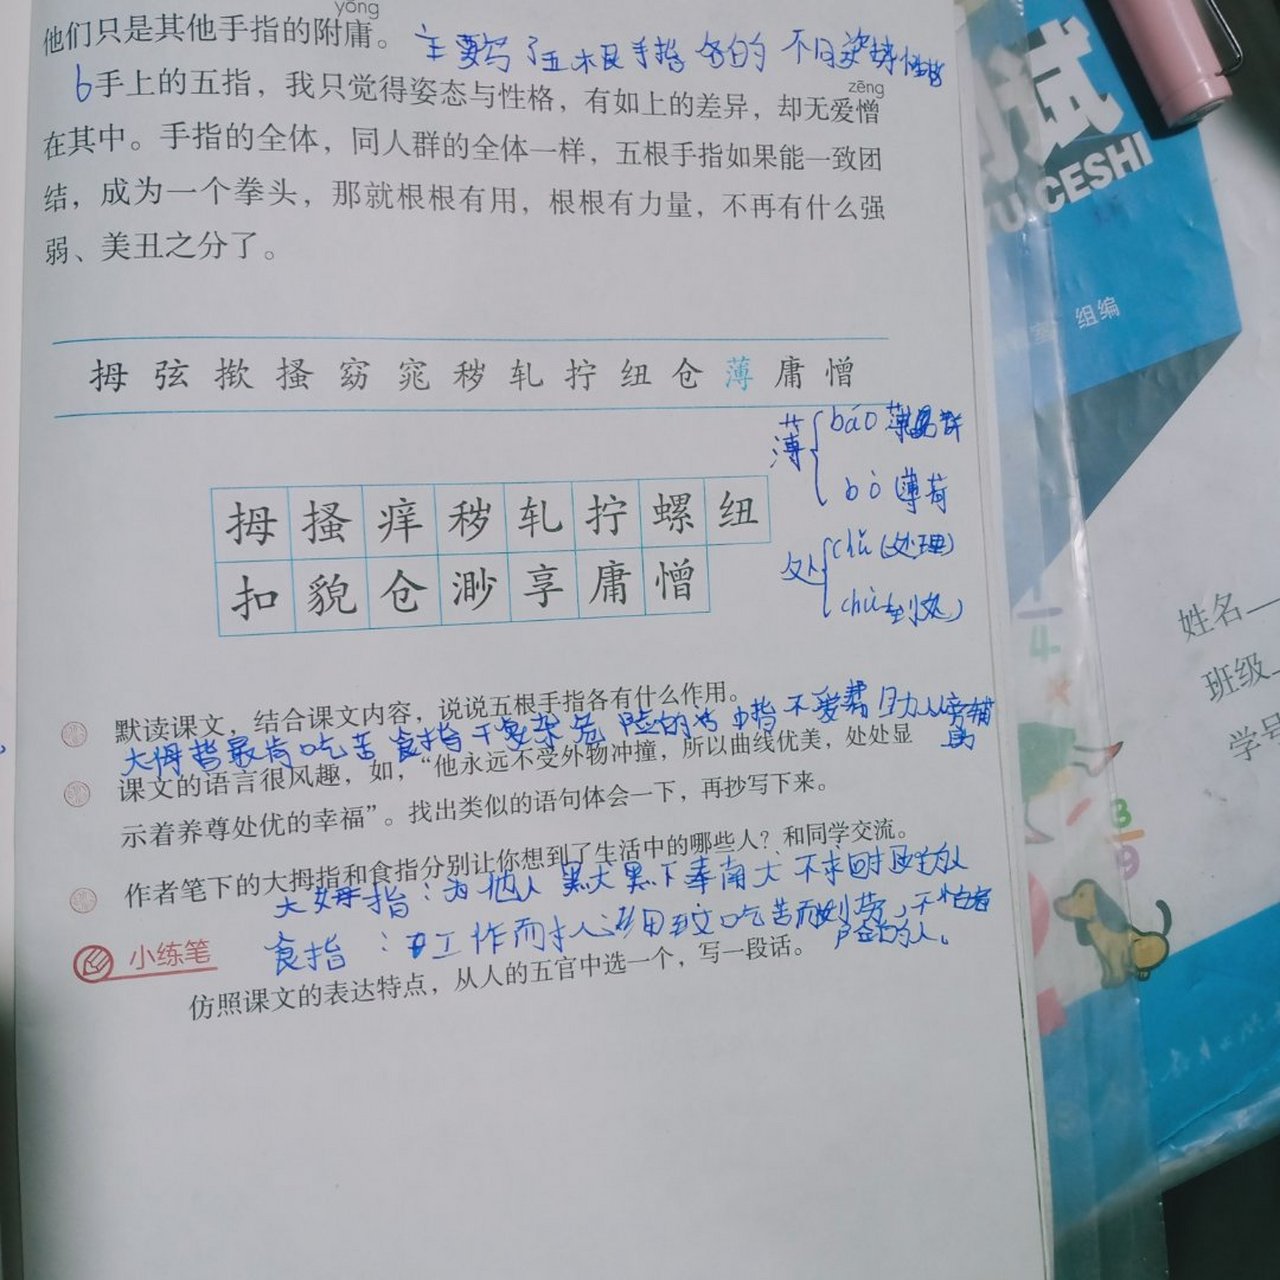 yōng
他们只是其他手指的附庸。
主要写了五根手指各的不同姿势性格
6手上的五指，我只觉得姿态与性格，有如上的差异，却无爱憎
zēng
在其中。手指的全体，同人群的全体一样，五根手指如果能一致团
结，成为一个拳头，那就根根有用，根根有力量，不再有什么强
弱、美丑之分了。
拇 弦 揿 搔 窈 窕 秽 轧 拧 纽 仓 薄 庸 憎
薄 báo
bò 薄荷
拇 搔 痒 秽 轧 拧 螺 纽
扣 貌 仓 渺 享 庸 憎
处 chǔ（处理）
chù 到处）
默读课文，结合课文内容，说说五根手指各有什么作用。
大拇指最肯吃苦 食指干复杂危险的 中指不爱帮
课文的语言很风趣，如，“他永远不受外物冲撞，所以曲线优美，处处显
示着养尊处优的幸福”。找出类似的语句体会一下，再抄写下来。
作者笔下的大拇指和食指分别让你想到了生活中的哪些人？和同学交流。
大姆指：为他人 不求回
食指：工作而 吃苦而 不怕
险的人。
小练笔
仿照课文的表达特点，从人的五官中选一个，写一段话。
试
YU CESHI
室 组编
姓名
班级
学号
1
4
3
9